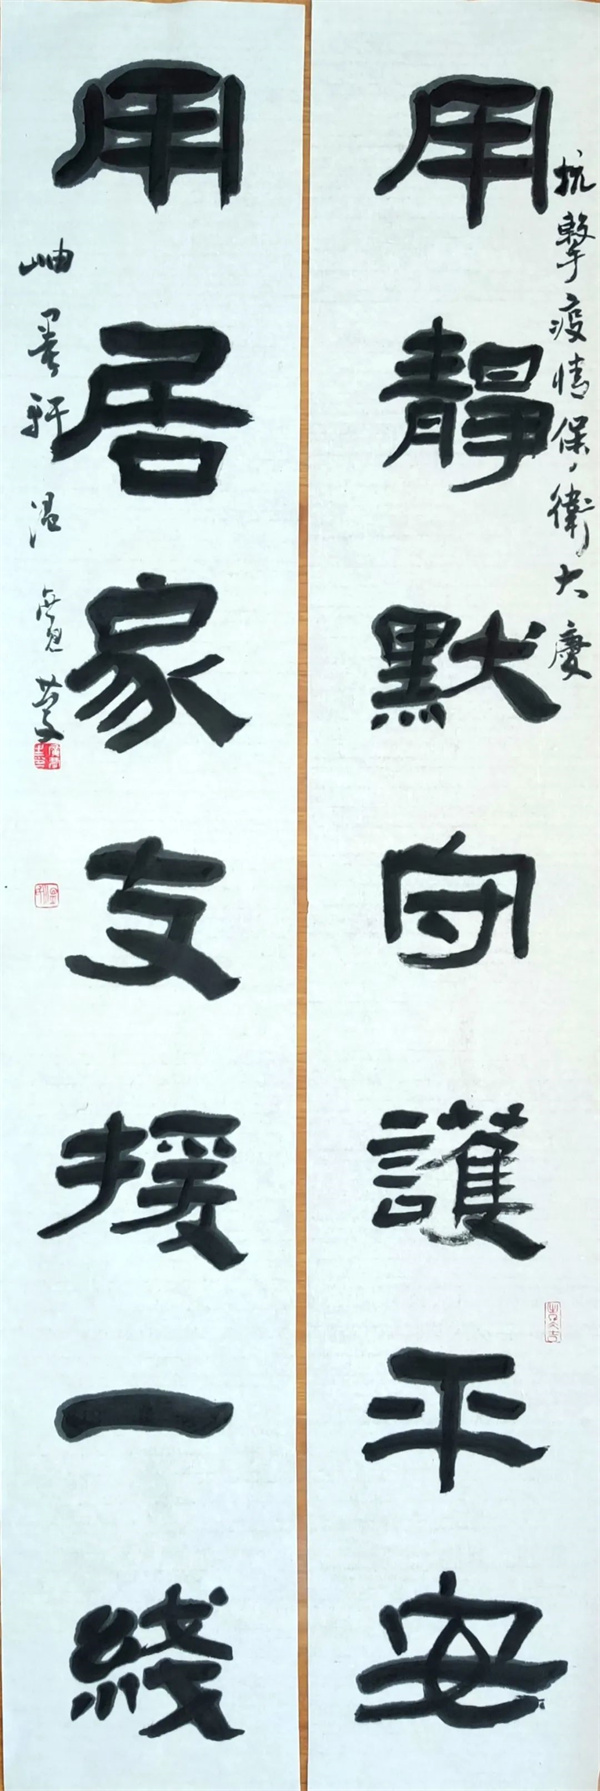 抗擊疫情保衛大慶
用靜默守護平安
用居家支援一綫
岫墨軒 温